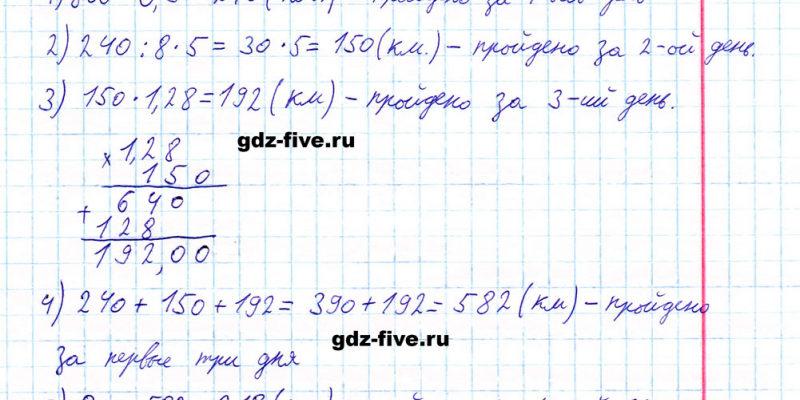 2) 240 : 8 · 5 = 30 · 5 = 150 (км.) – пройдено за 2-ой день.
3) 150 · 1,28 = 192 (км) – пройдено за 3-ий день.
gdz-five.ru
× 1,28
150
640
+
128
192,00
4) 240 + 150 + 192 = 390 + 192 = 582 (км) – пройдено
gdz-five.ru
за первые три дня